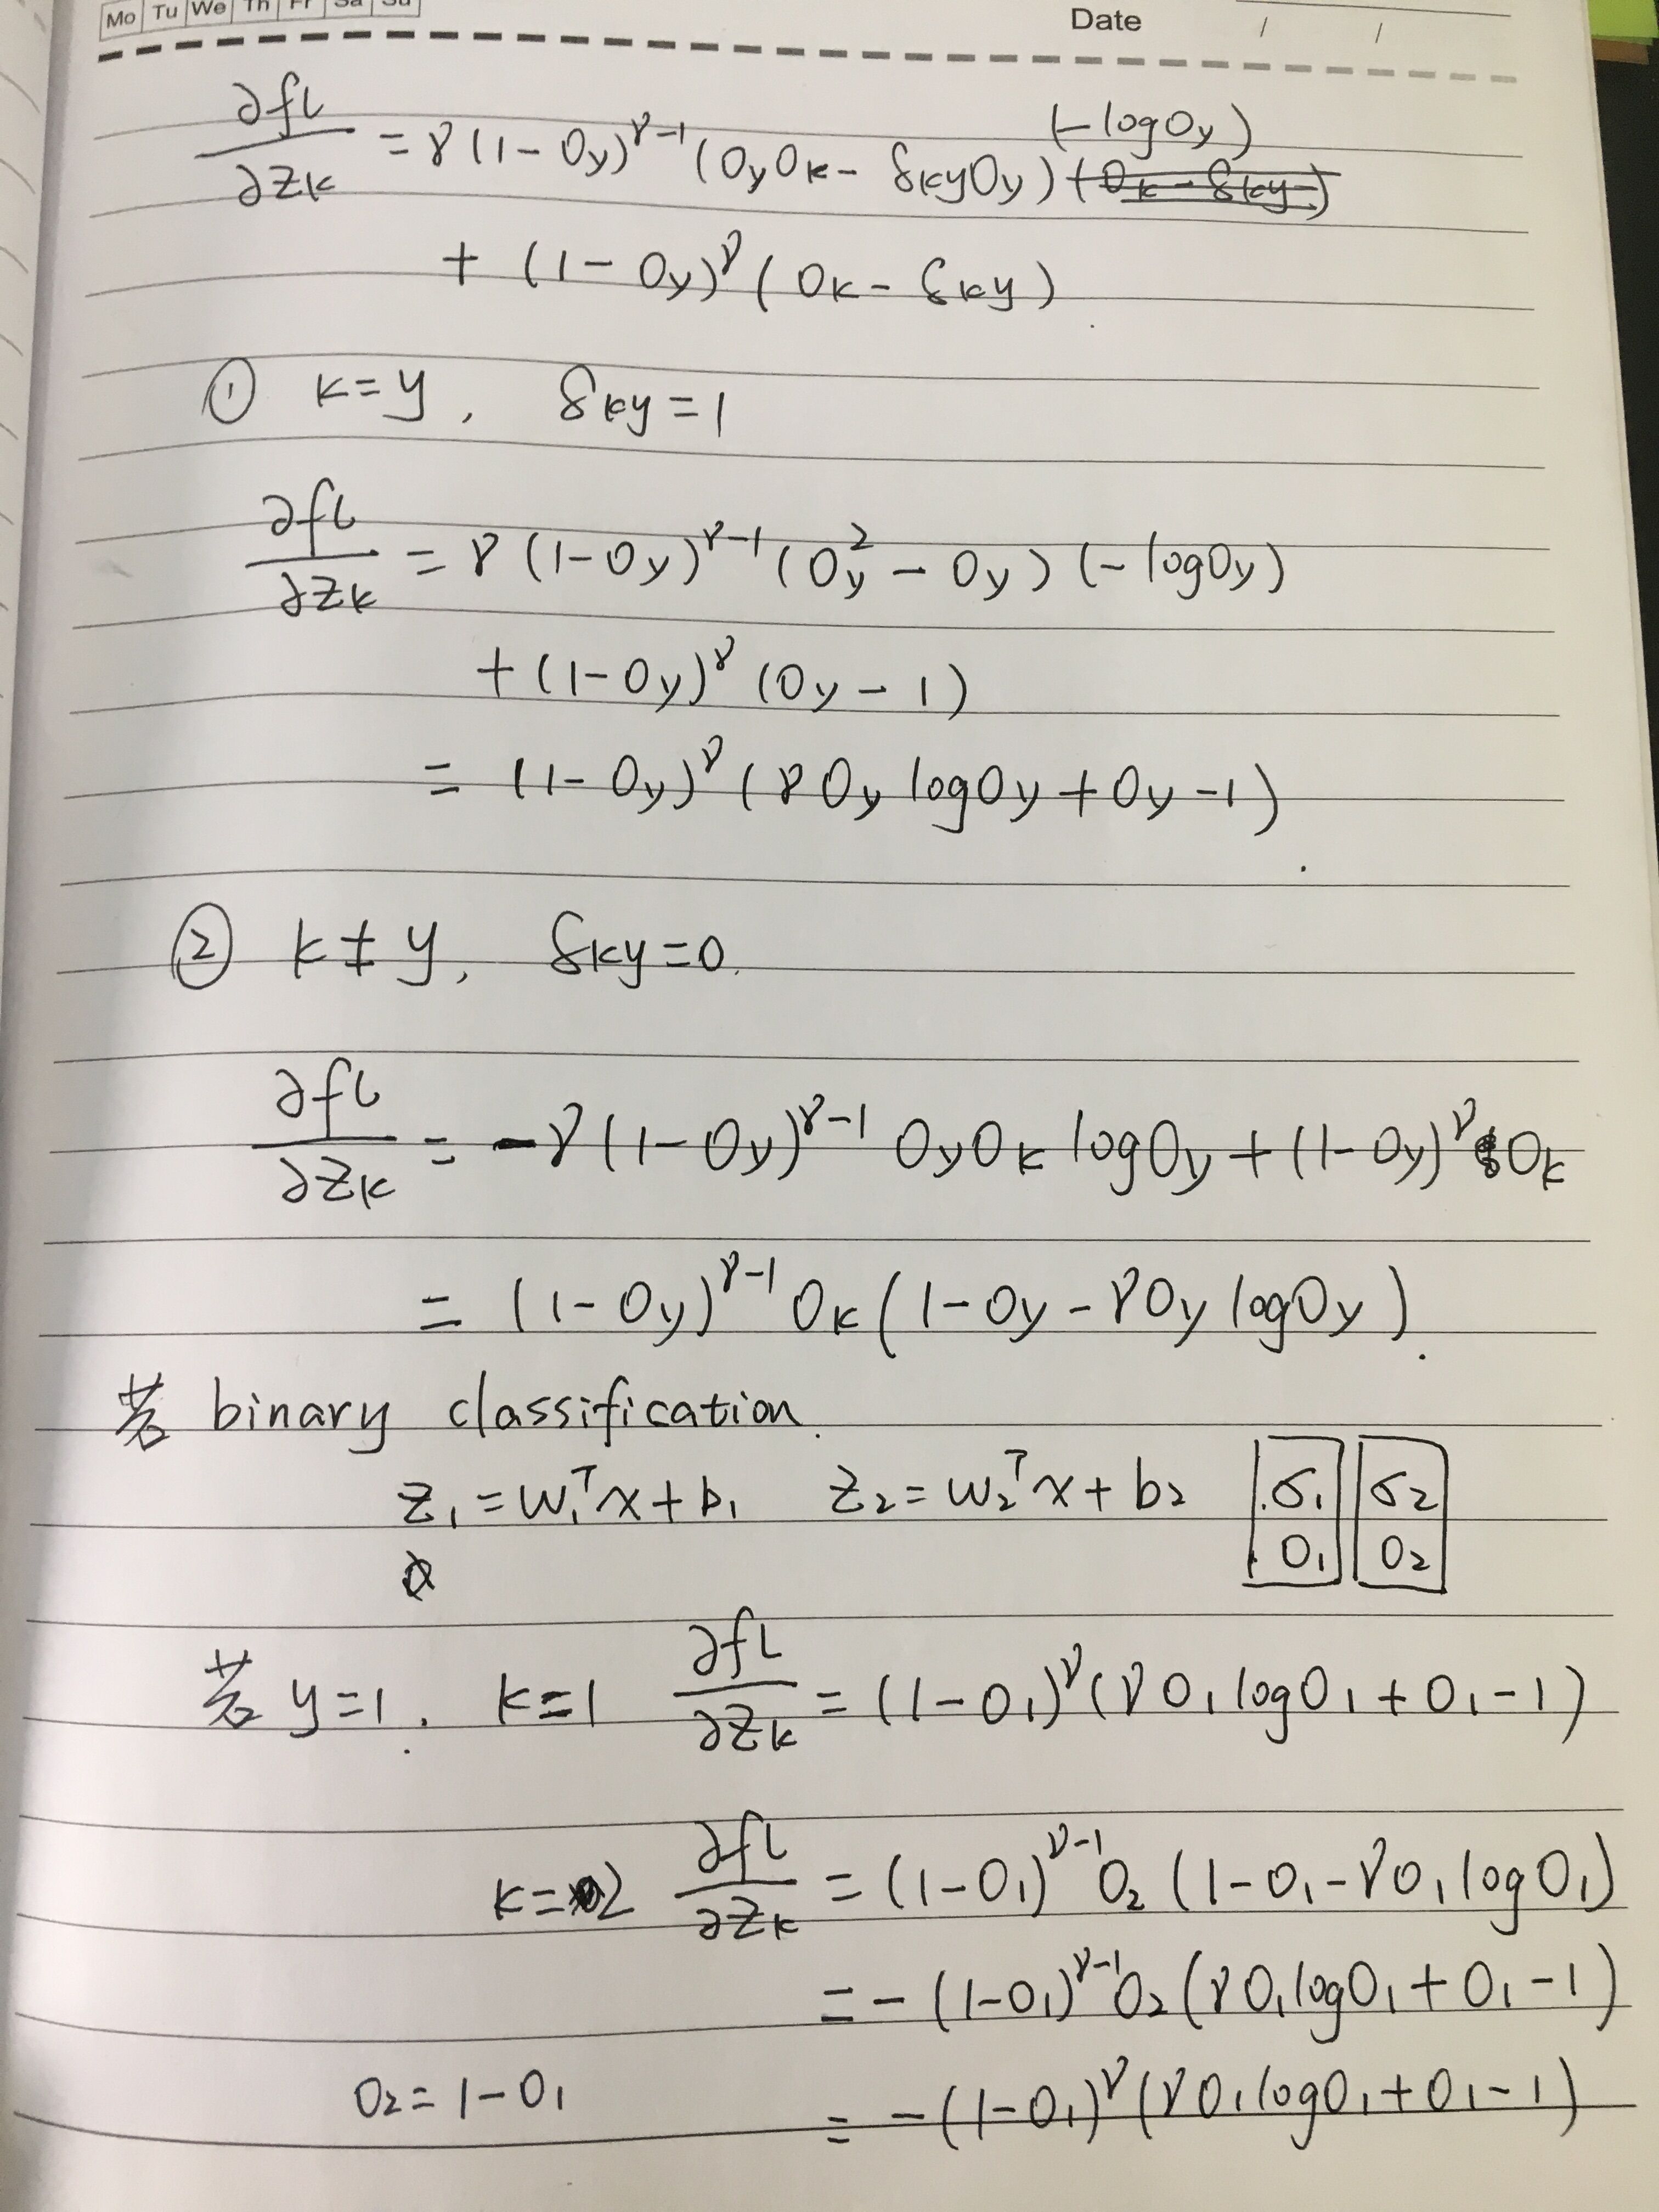 Mo Tu We Th Fr Sa Su
Date / /
∂fl/∂zk = γ(1-Oy)^γ-1 (OyOk - δkyOy) (-logOy)
+ (1-Oy)^γ (Ok - δky)
① k=y, δky=1
∂fl/∂zk = γ(1-Oy)^γ-1 (Oy^2 - Oy) (-logOy)
+ (1-Oy)^γ (Oy - 1)
= (1-Oy)^γ (γOy logOy + Oy -1)
② k≠y, δky=0.
∂fl/∂zk = -γ(1-Oy)^γ-1 OyOk logOy + (1-Oy)^γ Ok
= (1-Oy)^γ-1 Ok (1-Oy - γOy logOy).
若 binary classification.
z1 = w1^T x + b1 z2 = w2^T x + b2 σ1 σ2
O1 O2
若 y=1. k=1 ∂fl/∂zk = (1-O1)^γ (γO1 logO1 + O1 -1)
k=2 ∂fl/∂zk = (1-O1)^γ-1 O2 (1-O1-γO1 logO1)
= -(1-O1)^γ-1 O2 (γO1 logO1 + O1 -1)
O2 = 1-O1 = -(1-O1)^γ (γO1 logO1 + O1 -1)